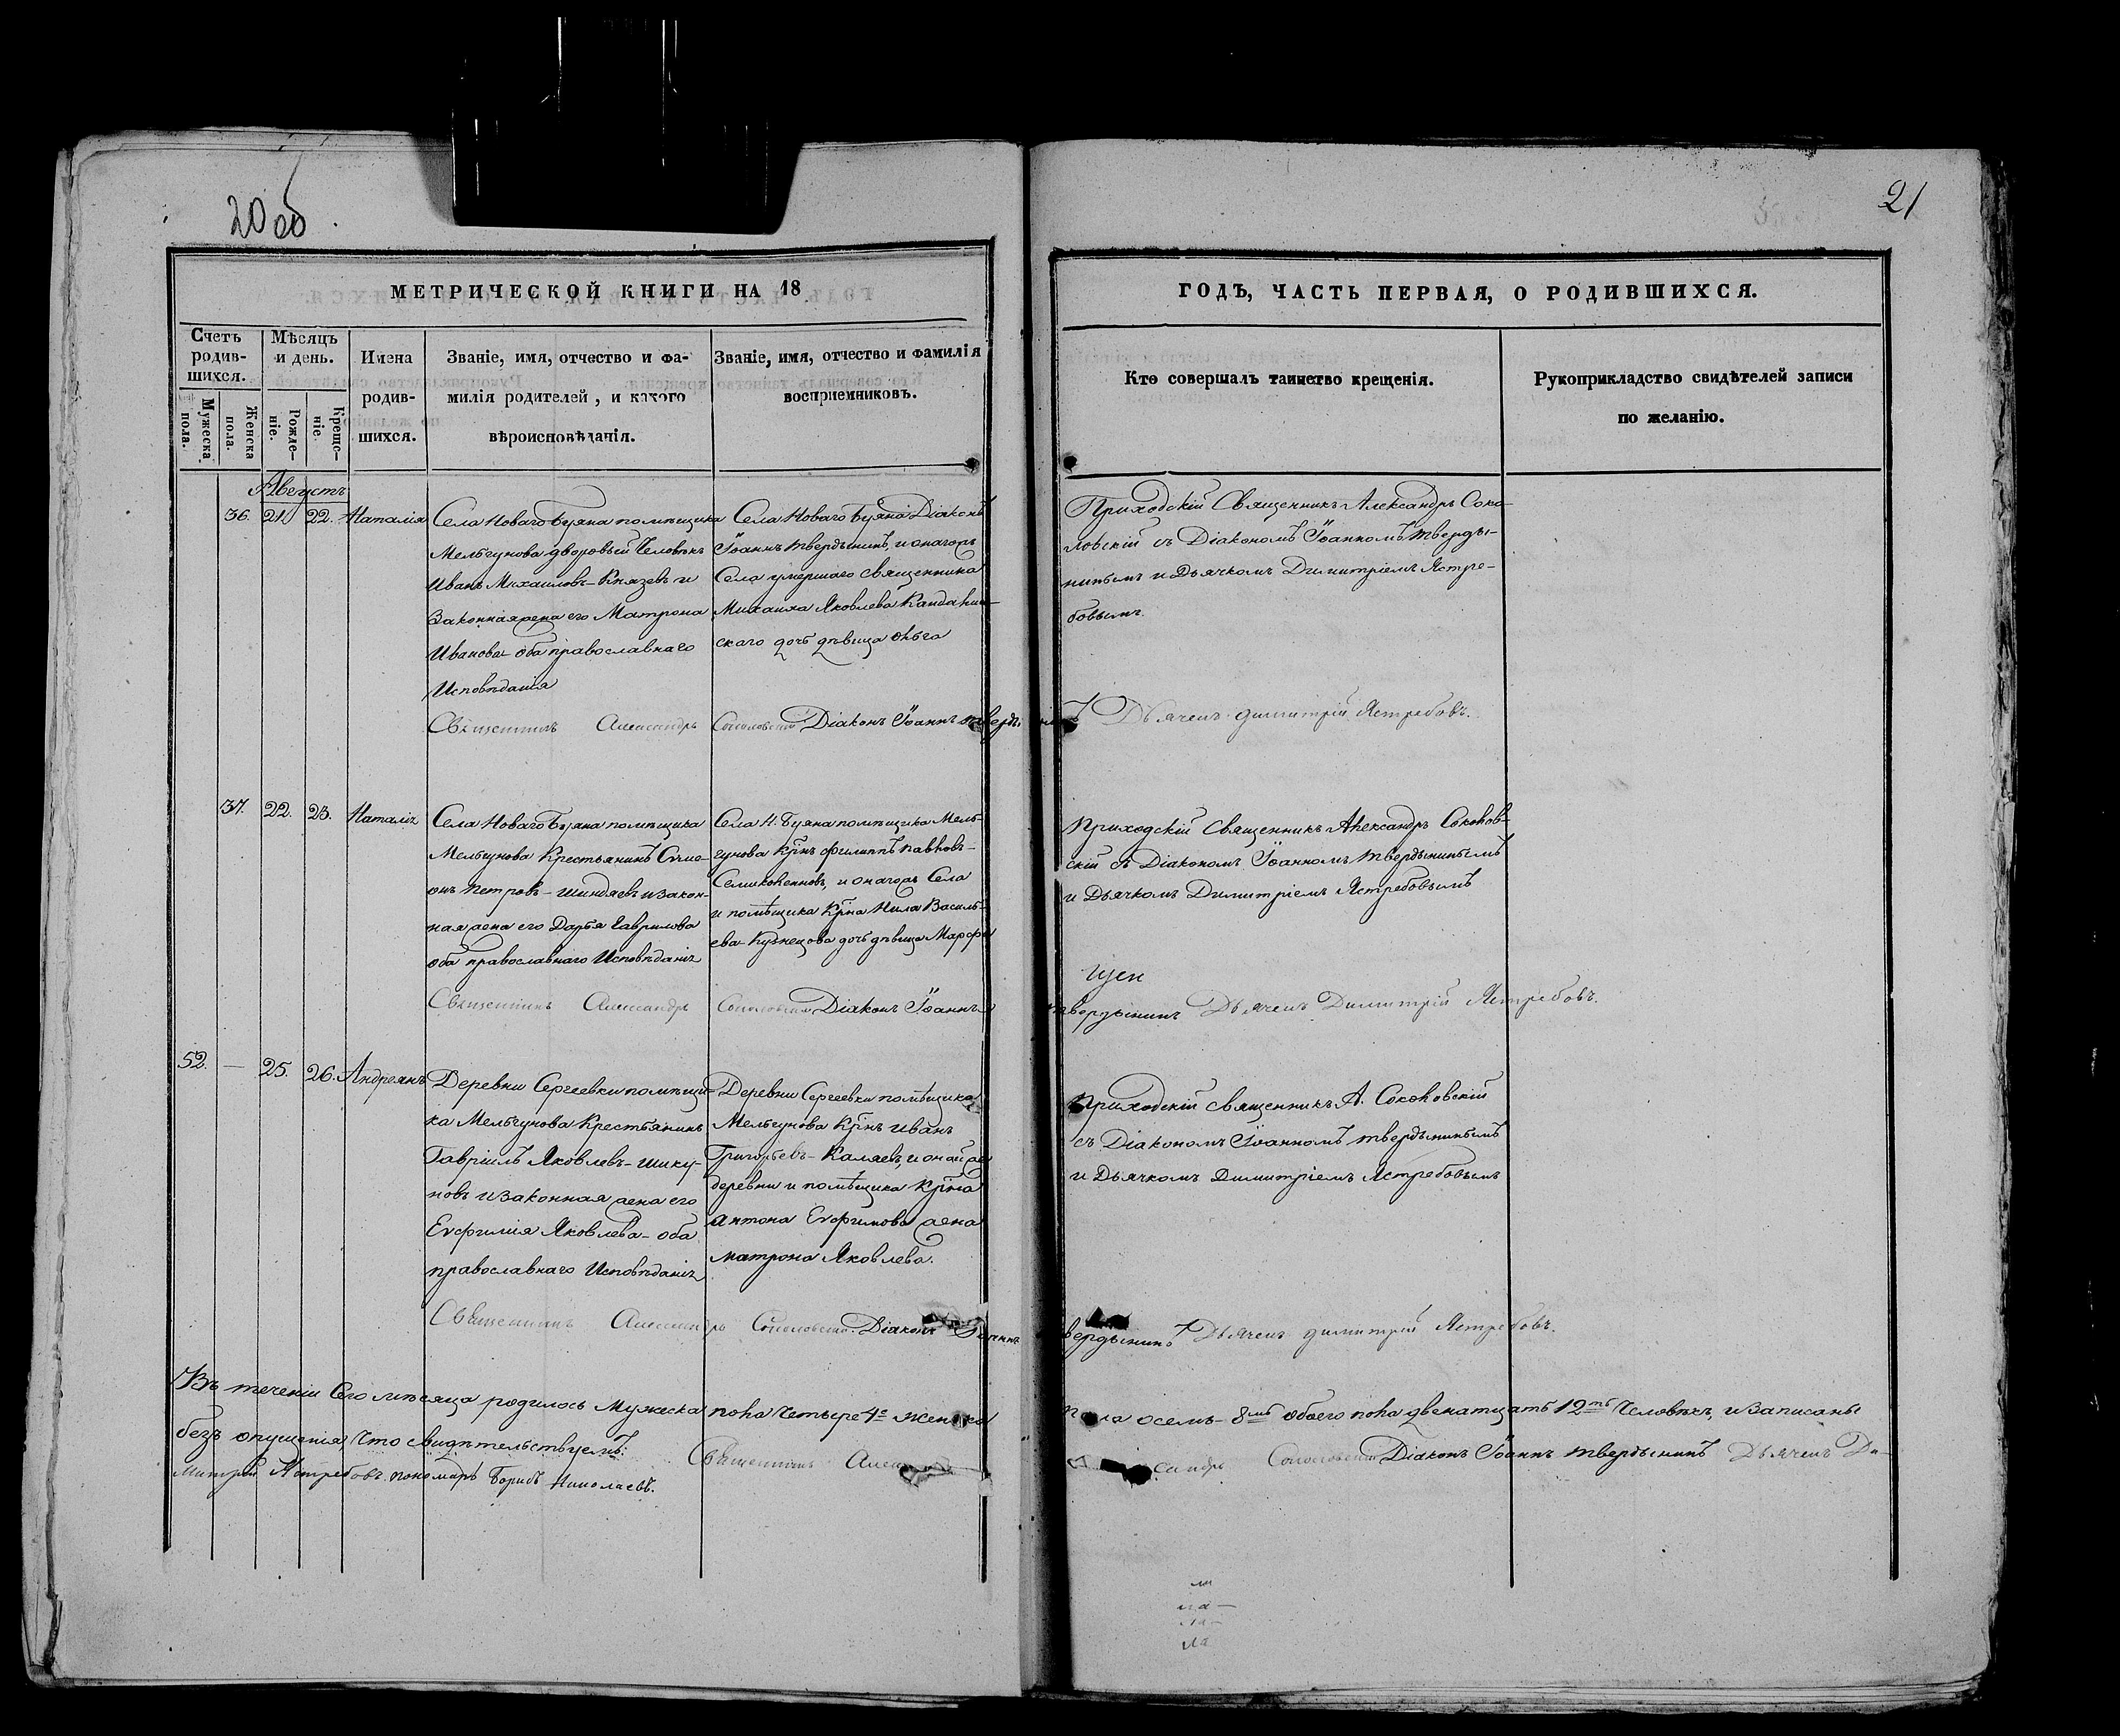 20 об
21
МЕТРИЧЕСКОЙ КНИГИ НА 18
ГОДЪ, ЧАСТЬ ПЕРВАЯ, О РОДИВШИХСЯ.
Счетъ родив-шихся.
Мужеска пола.
Женска пола.
Мѣсяцъ и день.
Рожде-ніе.
Креще-ніе.
Имена родив-шихся.
Званіе, имя, отчество и фа-
милія родителей, и какого
вѣроисповѣданія.
Званіе, имя, отчество и фамилія
воспріемниковъ.
Кто совершалъ таинство крещенія.
Рукоприкладство свидѣтелей записи
по желанію.
Августъ
36. 21. 22. Наталія
Села Новаго Буяна помѣщика
Мельгунова дворовый Человѣкъ
Иванъ Михаиловъ-Князевъ и
Законная жена его Матрона
Иванова-оба православнаго
Исповѣданія
Села Новаго Буяна Діаконъ
Іоаннъ Твердынинъ, и онагожъ
Села умершаго священника
Михаила Яковлева Кандалин-
скаго дочь дѣвица Ольга
Приходскій Священникъ Александръ Соко-
ловскій съ Діакономъ Іоанномъ Тверды-
нинымъ и Дьячкомъ Димитріемъ Ястре-
бовымъ.
Священникъ Александръ Соколовскій Діаконъ Іоаннъ Твердынинъ Дьячекъ Димитрій Ястребовъ.
37. 22. 23. Наталія
Села Новаго Буяна помѣщика
Мельгунова Крестьянинъ Симе-
онъ Петровъ-Шиндяевъ и закон-
ная жена его Дарья Гаврилова
оба православнаго Исповѣданія
Села Н. Буяна помѣщика Мель-
гунова Крінъ Филиппъ Павловъ-
Семиколенновъ, и онагожъ Села
и помѣщика Крїна Нила Василь-
ева-Кузнецова дочь дѣвица Марфа
Приходскій Священникъ Александръ Соколов-
скій съ Діакономъ Іоанномъ Твердынинымъ
и Дьячкомъ Димитріемъ Ястребовымъ
Священникъ Александръ Соколовскій Діаконъ Іоаннъ
Твердынинъ Дьячекъ Димитрій Ястребовъ.
52. — 25. 26. Андреянъ
Деревни Сергеевки помѣщи-
ка Мельгунова Крестьянинъ
Гавріилъ Яковлевъ-Шику-
новъ и законная жена его
Евфимія Яковлева-оба
православнаго Исповѣданія
Деревни Сергеевки помѣщика
Мельгунова Крїнъ Иванъ
Григорьевъ-Каляевъ, и онай же
деревни и помѣщика Крїна
Антона Евфимова жена
Матрона Яковлева.
Приходскій священникъ А. Соколовскій
съ Діакономъ Іоанномъ Твердынинымъ
и Дьячкомъ Димитріемъ Ястребовымъ
Священникъ Александръ Соколовскій Діаконъ Іоаннъ Твердынинъ Дьячекъ Димитрій Ястребовъ.
Въ теченіи Сего мѣсяца родилось Мужеска пола Четыре 4е женска пола осемь-8мь обоего пола двенатцать 12ть Человѣкъ, и записаны
безъ опущенія, Что свидѣтельствуемъ: Священникъ Александръ Соколовскій Діаконъ Іоаннъ Твердынинъ Дьячекъ Ди-
митрій Ястребовъ. пономарь Борисъ Николаевъ.